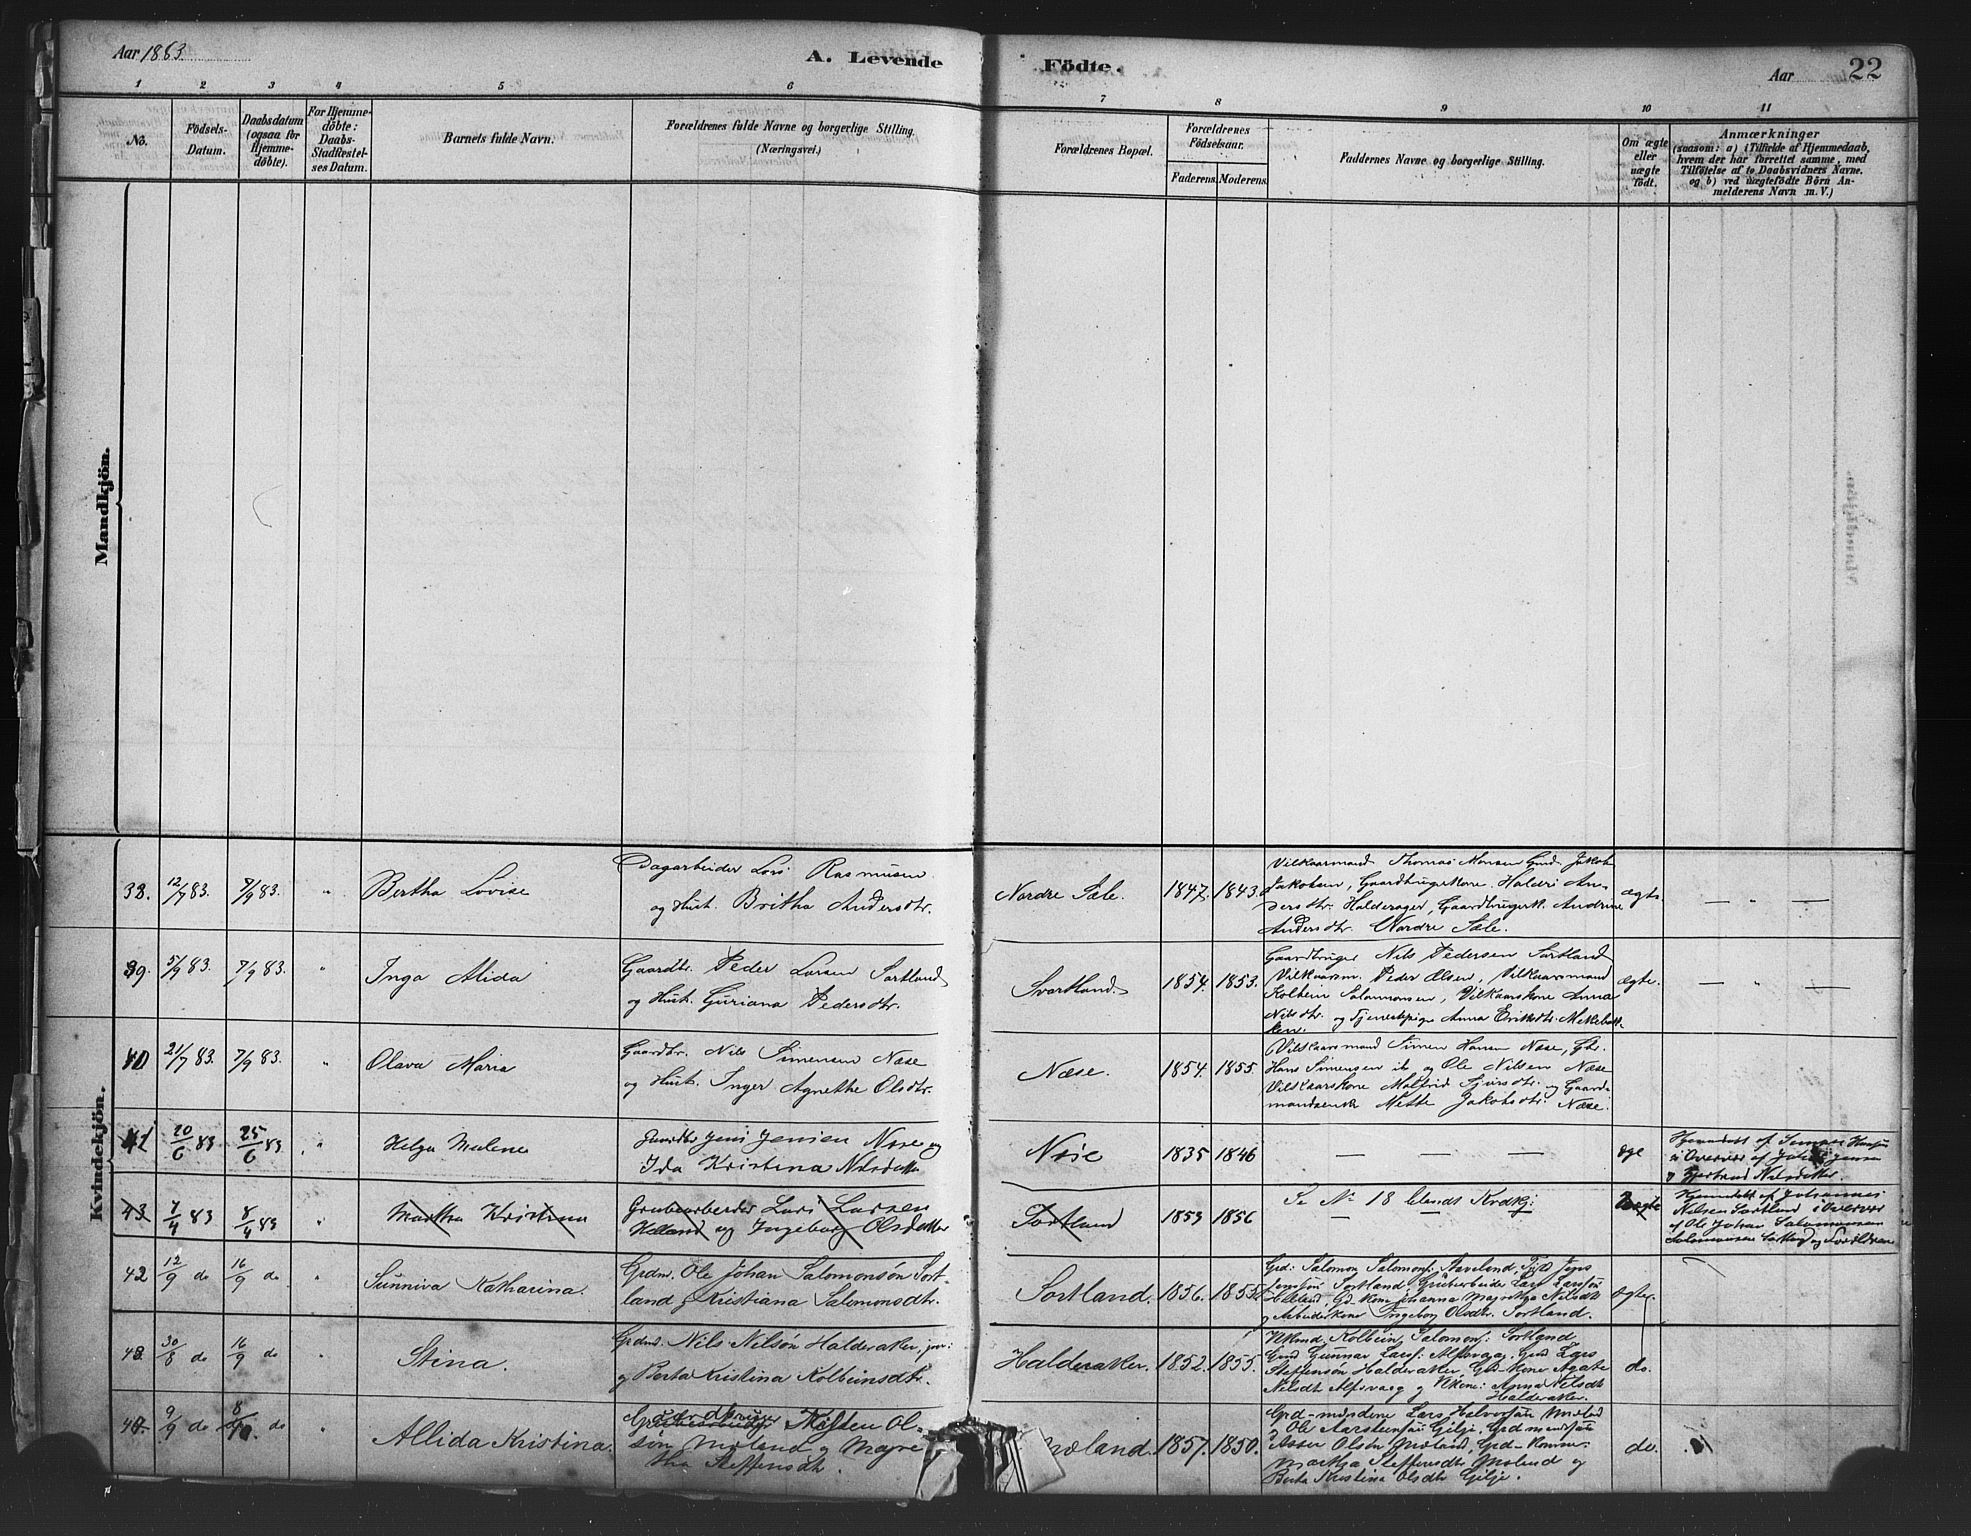 Aar 1883.
A. Levende Födte.
Aar 22
1 2 3 4 5 6 7 8 9 10 11
No.
Födsels-
Datum.
Daabsdatum
(ogsaa for
Hjemme-
döbte).
For Hjemme-
döbte:
Daabs-
Stadfæstel-
ses Datum.
Barnets fulde Navn.
Forældrenes fulde Navne og borgerlige Stilling.
(Næringsvei.)
Forældrenes Bopæl.
Forældrenes
Födselsaar.
Faderens. Moderens.
Faddernes Navne og borgerlige Stilling.
Om ægte
eller
uægte
födt.
Anmærkninger
(saasom: a) i Tilfælde af Hjemmedaab,
hvem der har forrettet samme, med
Tilföielse af to Daabsvidners Navne.
og b) ved uægtefödte Börn An-
melderens Navn m. V.)
Mandkjön.
Kvindekjön.
38. 12/7 83. 7/9 83. " Bertha Lovise
Dagarbeider Lars Rasmusen
og Hust. Britha Andersdtr.
Nordre Sæle. 1847. 1843.
Vilkaarmand Thomas Monsen Gmd. Jakob
Jakobsen, Gaardbrugerkone Haldri An-
dersdtr. Halderager, Gaardbrugerk. Andrine
Andersdtr. Nordre Sæle.
ægte. — " —
39. 5/9 83. 7/9 83. " Inga Alida
Gaardbr. Peder Larsen Sortland
og Hust. Guriana Pedersdtr.
Svortland. 1854. 1853.
Gaardbruger Nils Pedersen Sortland
Vilkaarsm. Peder Olsen, Vilkaarsmand
Kolbein Salomonsen, Vilkaarskone Anna
Nilsdtr. og Tjenestepige Anna Eriksdtr. Mekkebak-
ken.
ægte. — " —
40 21/7 83. 7/9 83. " Olava Maria
Gaardbr. Nils Simensen Næse
og Hust. Inger Agnethe Olsdtr.
Næse. 1854. 1855.
Vilkaarsmand Simen Hansen Næse, Gbr.
Hans Simensen ib og Ole Nilsen Næse
Vilkaarskone Malfrid Sjursdtr. og Gaard-
mandsenke Mette Jakobsdtr. Næse.
41 20/6 83 25/6 83 " Helga Malene
Gaardbr Jens Jensen Nøse og
Ida Kristina Nilsdatter
Nøse 1835 1846 — — — — ege
Hjemmedøbt af
i Overvær af Jensen
og Gjertrud Nilsdatter.
43 7/4 83 8/4 83 " Martha Kristina
Grubearbeider Lars Larsen
Helland og Ingeborg Olsdatter
Sortland 1853 1856
Se No 18 blandt Krdkj
— — —
Uægte
Hjemmedøbt af Johannes
Nilsen Sortland i Overvær
af Ole Johan Salomonsen
Salomonsen Sortland og
42 12/9 do 16/9 do " Sunniva Katharina.
Grdm. Ole Johan Salomonsön Sort-
land og Kristiana Salomonsdtr.
Sortland. 1856. 1855.
Grd: Salomon Salomonss. Aaveland, Jens
Jenssön Sortland, Grubearbeider Lars Larssön
Helland, Gd-kone Johanna Magretha Nilsdt
og Arbeiderkone Ingeborg Olsdtr. Sortland.
ægte.
43 30/8 do 16/9 do " Stina.
Grdmd. Nils Nilsön Halderaker, jun:
og Berta Kristina Kolbeinsdtr.
Halderaker. 1852. 1855.
Vkmd. Kolbein Salomons: Sortland
Grd Gunnar Larss. Alfsvaag, Grd Lars
Steffensön Halderaker, Grd-kone Agate
Nilsdt Alfsvaag og Vkone: Anna Nilsdt
Halderaker.
do.
44. 9/9 do 8/10. do " Allida Kristina.
Grubearbeider Gardbruger Torsten Ol-
sön Mæland og Magre
tha Steffensdt.
Mæland. 1857. 1850.
Grd-mændene Lars Halvorssön Mæland
og Ole Aarstensön Gilje, Grdmandssön
Asser Olsön Mæland, Grd-konene:
Martha Steffensdt Mæland og
Berta Kristina Olsdtr Gilje.
do.